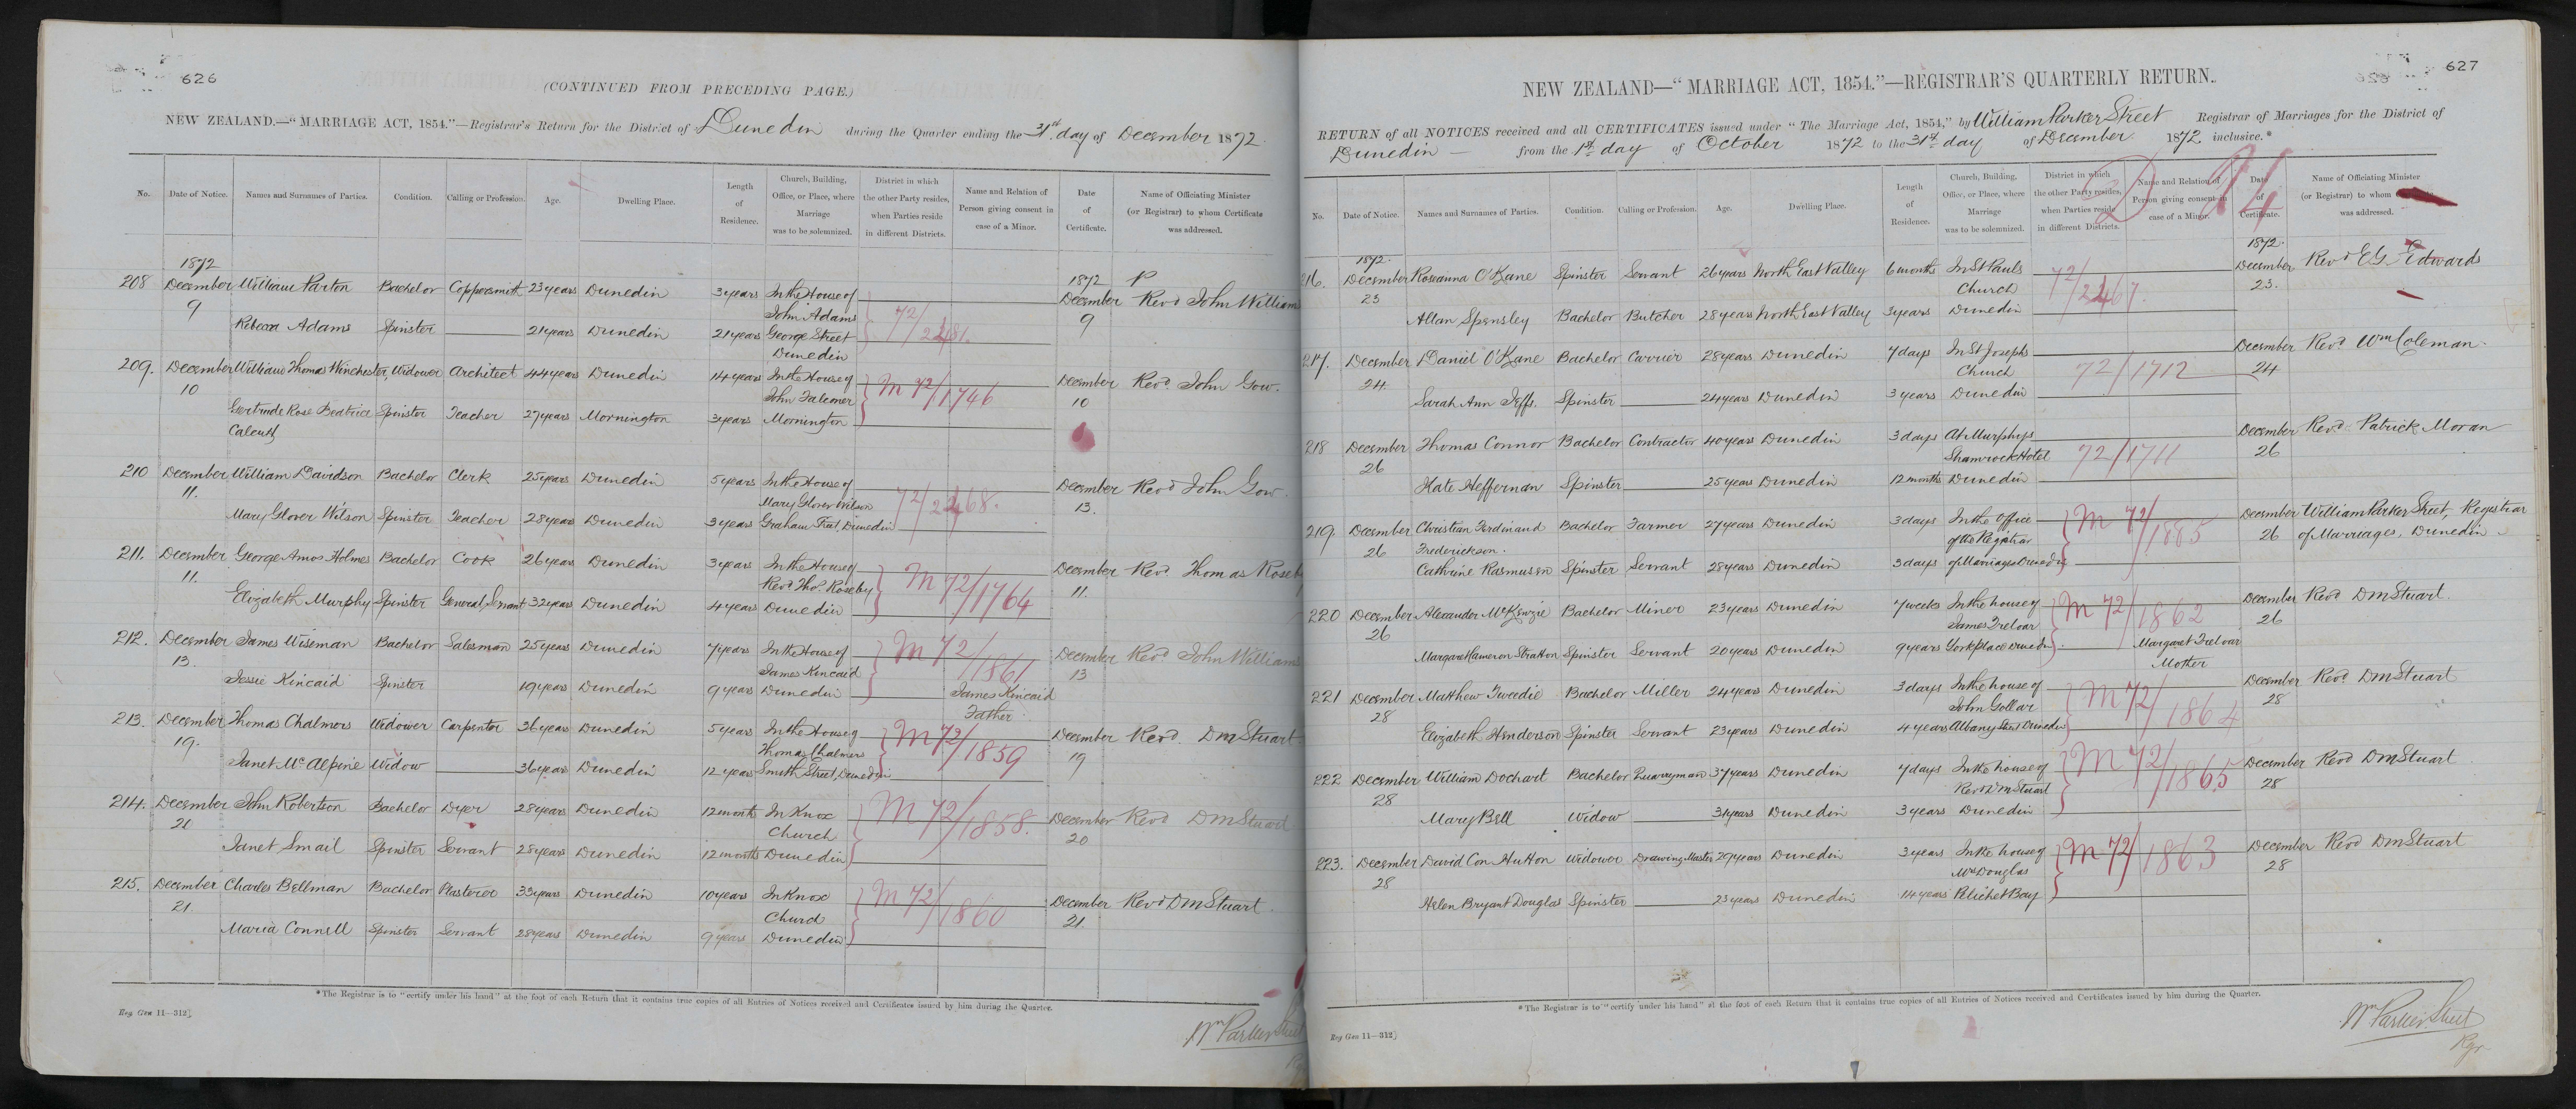 626
(CONTINUED FROM PRECEDING PAGE.)
NEW ZEALAND.—"MARRIAGE ACT, 1854."—Registrar's Return for the District of Dunedin during the Quarter ending the 31st day of December 1872.
No. Date of Notice. Names and Surnames of Parties. Condition. Calling or Profession. Age. Dwelling Place. Length of Residence. Church, Building, Office, or Place, where Marriage was to be solemnized. District in which the other Party resides, when Parties reside in different Districts. Name and Relation of Person giving consent in case of a Minor. Date of Certificate. Name of Officiating Minister (or Registrar) to whom Certificate was addressed.
1872 1872
208 December 9 William Parton Bachelor Coppersmith 23 years Dunedin 3 years In the House of John Adams December 9 Revd John William
Rebecca Adams Spinster 21 years Dunedin 21 years George Street Dunedin
209. December 10 William Thomas Winchester, Widower Architect 44 years Dunedin 14 years In the House of John Falconer M 72/1746 December 10 Revd. John Gow.
Gertrude Rose Beatrice Calcutt Spinster Teacher 27 years Mornington 3 years Mornington
210 December 11. William Davidson Bachelor Clerk 25 years Dunedin 5 years In the House of Mary Glover Wilson December 13. Revd John Gow.
Mary Glover Wilson Spinster Teacher 28 years Dunedin 3 years Graham Street, Dunedin
211. December 11. George Amos Holmes Bachelor Cook 26 years Dunedin 3 years In the House of Revd Thos. Roseby M 72/1764 December 11. Revd. Thomas Roseby
Elizabeth Murphy Spinster General Servant 32 years Dunedin 4 years Dunedin
212. December 13. James Wiseman Bachelor Salesman 25 years Dunedin 7 years In the House of James Kincaid M 72/1861 December 13 Revd. John Williams
Jessie Kincaid Spinster 19 years Dunedin 9 years Dunedin James Kincaid Father
213. December 19. Thomas Chalmers Widower Carpenter 36 years Dunedin 5 years In the House of Thomas Chalmers M 72/1859 December 19 Revd. D M Stuart
Janet McAlpine Widow 36 years Dunedin 12 years Smith Street, Dunedin
214. December 20 John Robertson Bachelor Dyer 28 years Dunedin 12 months In Knox Church M 72/1858. December 20 Revd D M Stuart
Janet Smail Spinster Servant 28 years Dunedin 12 months Dunedin
215. December 21. Charles Bellman Bachelor Plasterer 33 years Dunedin 10 years In Knox Church M 72/1860 December 21. Revd D M Stuart.
Maria Connell Spinster Servant 28 years Dunedin 9 years Dunedin
*The Registrar is to "certify under his hand" at the foot of each Return that it contains true copies of all Entries of Notices received and Certificates issued by him during the Quarter.
Reg Gen 11—312]
Wm Parker Street
627
NEW ZEALAND—"MARRIAGE ACT, 1854."—REGISTRAR'S QUARTERLY RETURN.
RETURN of all NOTICES received and all CERTIFICATES issued under "The Marriage Act, 1854," by William Parker Street Registrar of Marriages for the District of
Dunedin from the 1st day of October 1872 to the 31st day of December 1872 inclusive.*
No. Date of Notice. Names and Surnames of Parties. Condition. Calling or Profession. Age. Dwelling Place. Length of Residence. Church, Building, Office, or Place, where Marriage was to be solemnized. District in which the other Party resides, when Parties reside in different Districts. Name and Relation of Person giving consent in case of a Minor. Date of Certificate. Name of Officiating Minister (or Registrar) to whom was addressed.
1872. 1872.
216. December 23 Roseanna O'Kane Spinster Servant 26 years North East Valley 6 months In St Pauls Church December 23. Revd E G Edwards
Allan Spensley Bachelor Butcher 28 years North East Valley 3 years Dunedin
217. December 24 Daniel O'Kane Bachelor Carrier 28 years Dunedin 7 days In St Josephs Church 72/1712 December 24 Revd. Wm Coleman
Sarah Ann Jeffs. Spinster 24 years Dunedin 3 years Dunedin
218 December 26 Thomas Connor Bachelor Contractor 40 years Dunedin 3 days At Murphys Shamrock Hotel 72/1711 December 26 Revd. Patrick Moran
Kate Heffernan Spinster 25 years Dunedin 12 months Dunedin
219. December 26 Christian Ferdinand Frederickson. Bachelor Farmer 27 years Dunedin 3 days In the Office of the Registrar M 72/1885 December 26 William Parker Street, Registrar of Marriages, Dunedin
Cathrine Rasmussen Spinster Servant 28 years Dunedin 3 days of Marriages Dunedin
220 December 26 Alexander McKenzie Bachelor Miner 23 years Dunedin 7 weeks In the house of James Treloar M 72/1862 December 26 Revd D M Stuart.
Margaret Cameron Stratton Spinster Servant 20 years Dunedin 9 years York place Dunedin Margaret Treloar Mother
221 December 28 Matthew Tweedie Bachelor Miller 24 years Dunedin 3 days In the house of John Gollar M 72/1864 December 28 Revd. D M Stuart
Elizabeth Henderson Spinster Servant 23 years Dunedin 4 years Albany Street Dunedin
222 December 28 William Dochart Bachelor Quarryman 37 years Dunedin 7 days In the house of Revd D M Stuart M 72/1865 December 28 Revd D M Stuart
Mary Bell Widow 31 years Dunedin 3 years Dunedin
223. December 28 David Con Hutton Widower Drawing Master 29 years Dunedin 3 years In the house of Mrs Douglas M 72/1863 December 28 Revd D M Stuart
Helen Bryant Douglas Spinster 23 years Dunedin 14 years Pelichet Bay
*The Registrar is to "certify under his hand" at the foot of each Return that it contains true copies of all Entries of Notices received and Certificates issued by him during the Quarter.
Reg Gen 11—312]
Wm Parker Street
Rgr